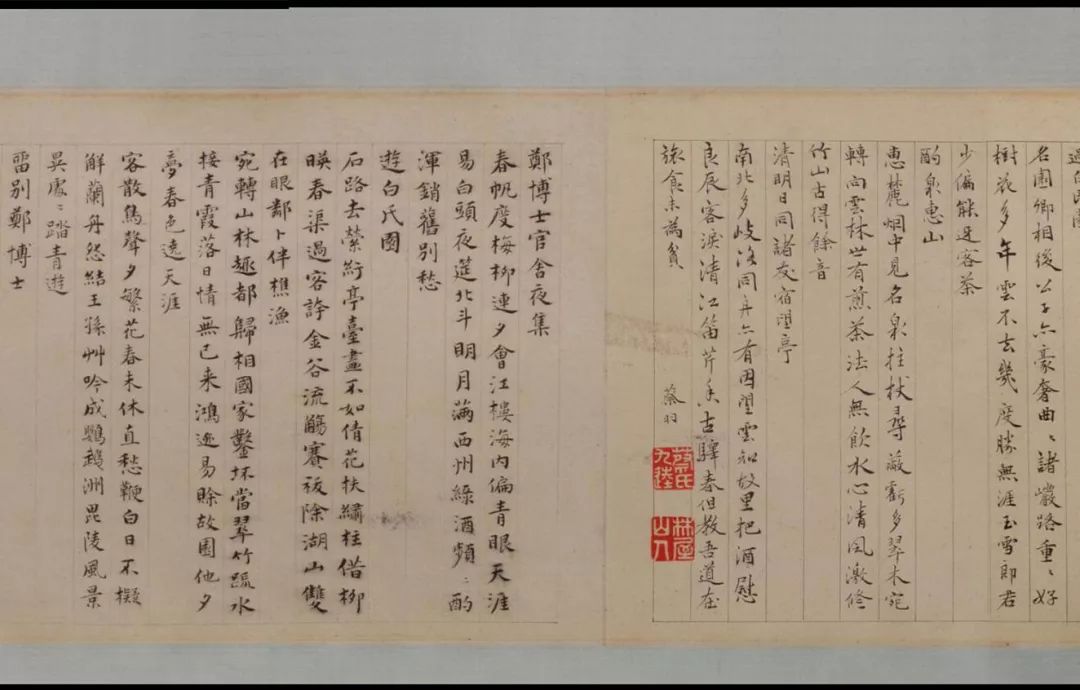 過白氏園
名園卿相後公子亦豪奢曲〻諸巖路重〻好
樹花多年雲不去幾度勝無涯玉雪郎君
少偏能送客茶
酌泉惠山
惠麓烟中見名泉拄杖尋蔽虧多翠木宛
轉向雲林世有煎茶法人無飲水心清風激修
竹山古得餘音
清明日同諸友宿望亭
南北多岐路同舟亦有因望雲知故里把酒慰
良辰客淚清江笛芹香古驛春但教吾道在
旅食未為貧
蔡羽
蔡氏九逵
林屋山人
鄭博士官舍夜集
春帆度梅柳連夕會江樓海內偏青眼天涯
易白頭夜筵北斗明月滿西州綠酒頻〻酌
渾銷舊別愁
遊白氏園
石路去縈紆亭臺盡不如倩花扶繡柱借柳
暎春渠過客誇金谷流觴賽祓除湖山雙
在眼鄰卜伴樵漁
宛轉山林趣都歸相國家鑿坏當翠竹疏水
接青霞落日情無已来鴻逸易賒故園他夕
夢春色遶天涯
客散鳥聲夕繁花春未休直愁鞭白日不擬
解蘭舟怨結王孫草吟成鸚鵡洲毘陵風景
異處〻踏青遊
留別鄭博士